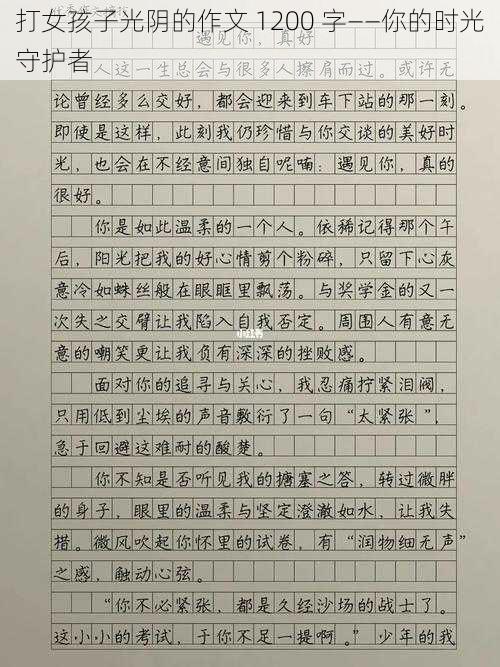 打女孩子光阴的作文 1200 字——你的时光
守护者
遇见你，真好
人这一生总会与很多人擦肩而过。或许无
论曾经多么交好，都会迎来到车下站的那一刻。
即使是这样，此刻我仍珍惜与你交谈的美好时
光，也会在不经意间独自呢喃：遇见你，真的
很好。
你是如此温柔的一个人。依稀记得那个午
后，阳光把我的好心情剪个粉碎，只留下心灰
意冷如蛛丝般在眼眶里飘荡。与奖学金的又一
次失之交臂让我陷入自我否定。周围人有意无
意的嘲笑更让我负有深深的挫败感。
小红书
面对你的追寻与关心，我忍痛拧紧泪阀，
只用低到尘埃的声音敷衍了一句“太紧张”，
急于回避这难耐的酸楚。
你不知是否听见我的搪塞之答，转过微胖
的身子，眼里的温柔与坚定澄澈如水，让我失
措。微风吹起你怀里的试卷，有“润物细无声”
之感，触动心弦。
“你不必紧张，都是久经沙场的战士了。
这小小的考试，于你不足一提啊。”少年的我